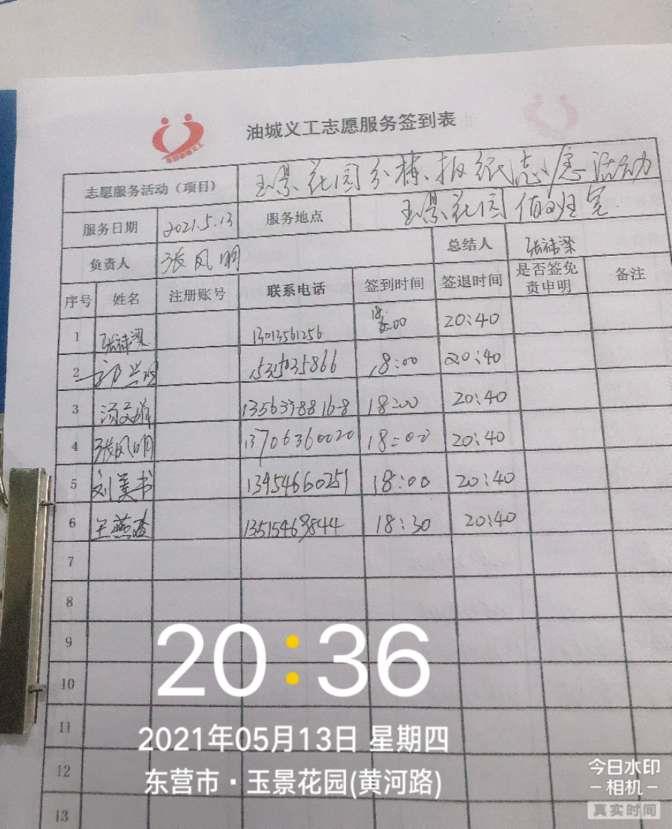 油城义工志愿服务签到表
志愿服务活动（项目） 玉景花园 报纸志愿活动
服务日期 2021.5.13 服务地点 玉景花园
负责人 张凤明 总结人
序号 姓名 注册账号 联系电话 签到时间 签退时间 是否签免责申明 备注
1 18:00 20:40
2 18:00 20:40
3 18:00 20:40
4 张凤明 13706360020 18:00 20:40
5 刘美书 13954660251 18:00 20:40
6 18:30 20:40
7
8
9
10
11
12
13
20:36
2021年05月13日 星期四
东营市·玉景花园(黄河路)
今日水印
-相机-
真实时间